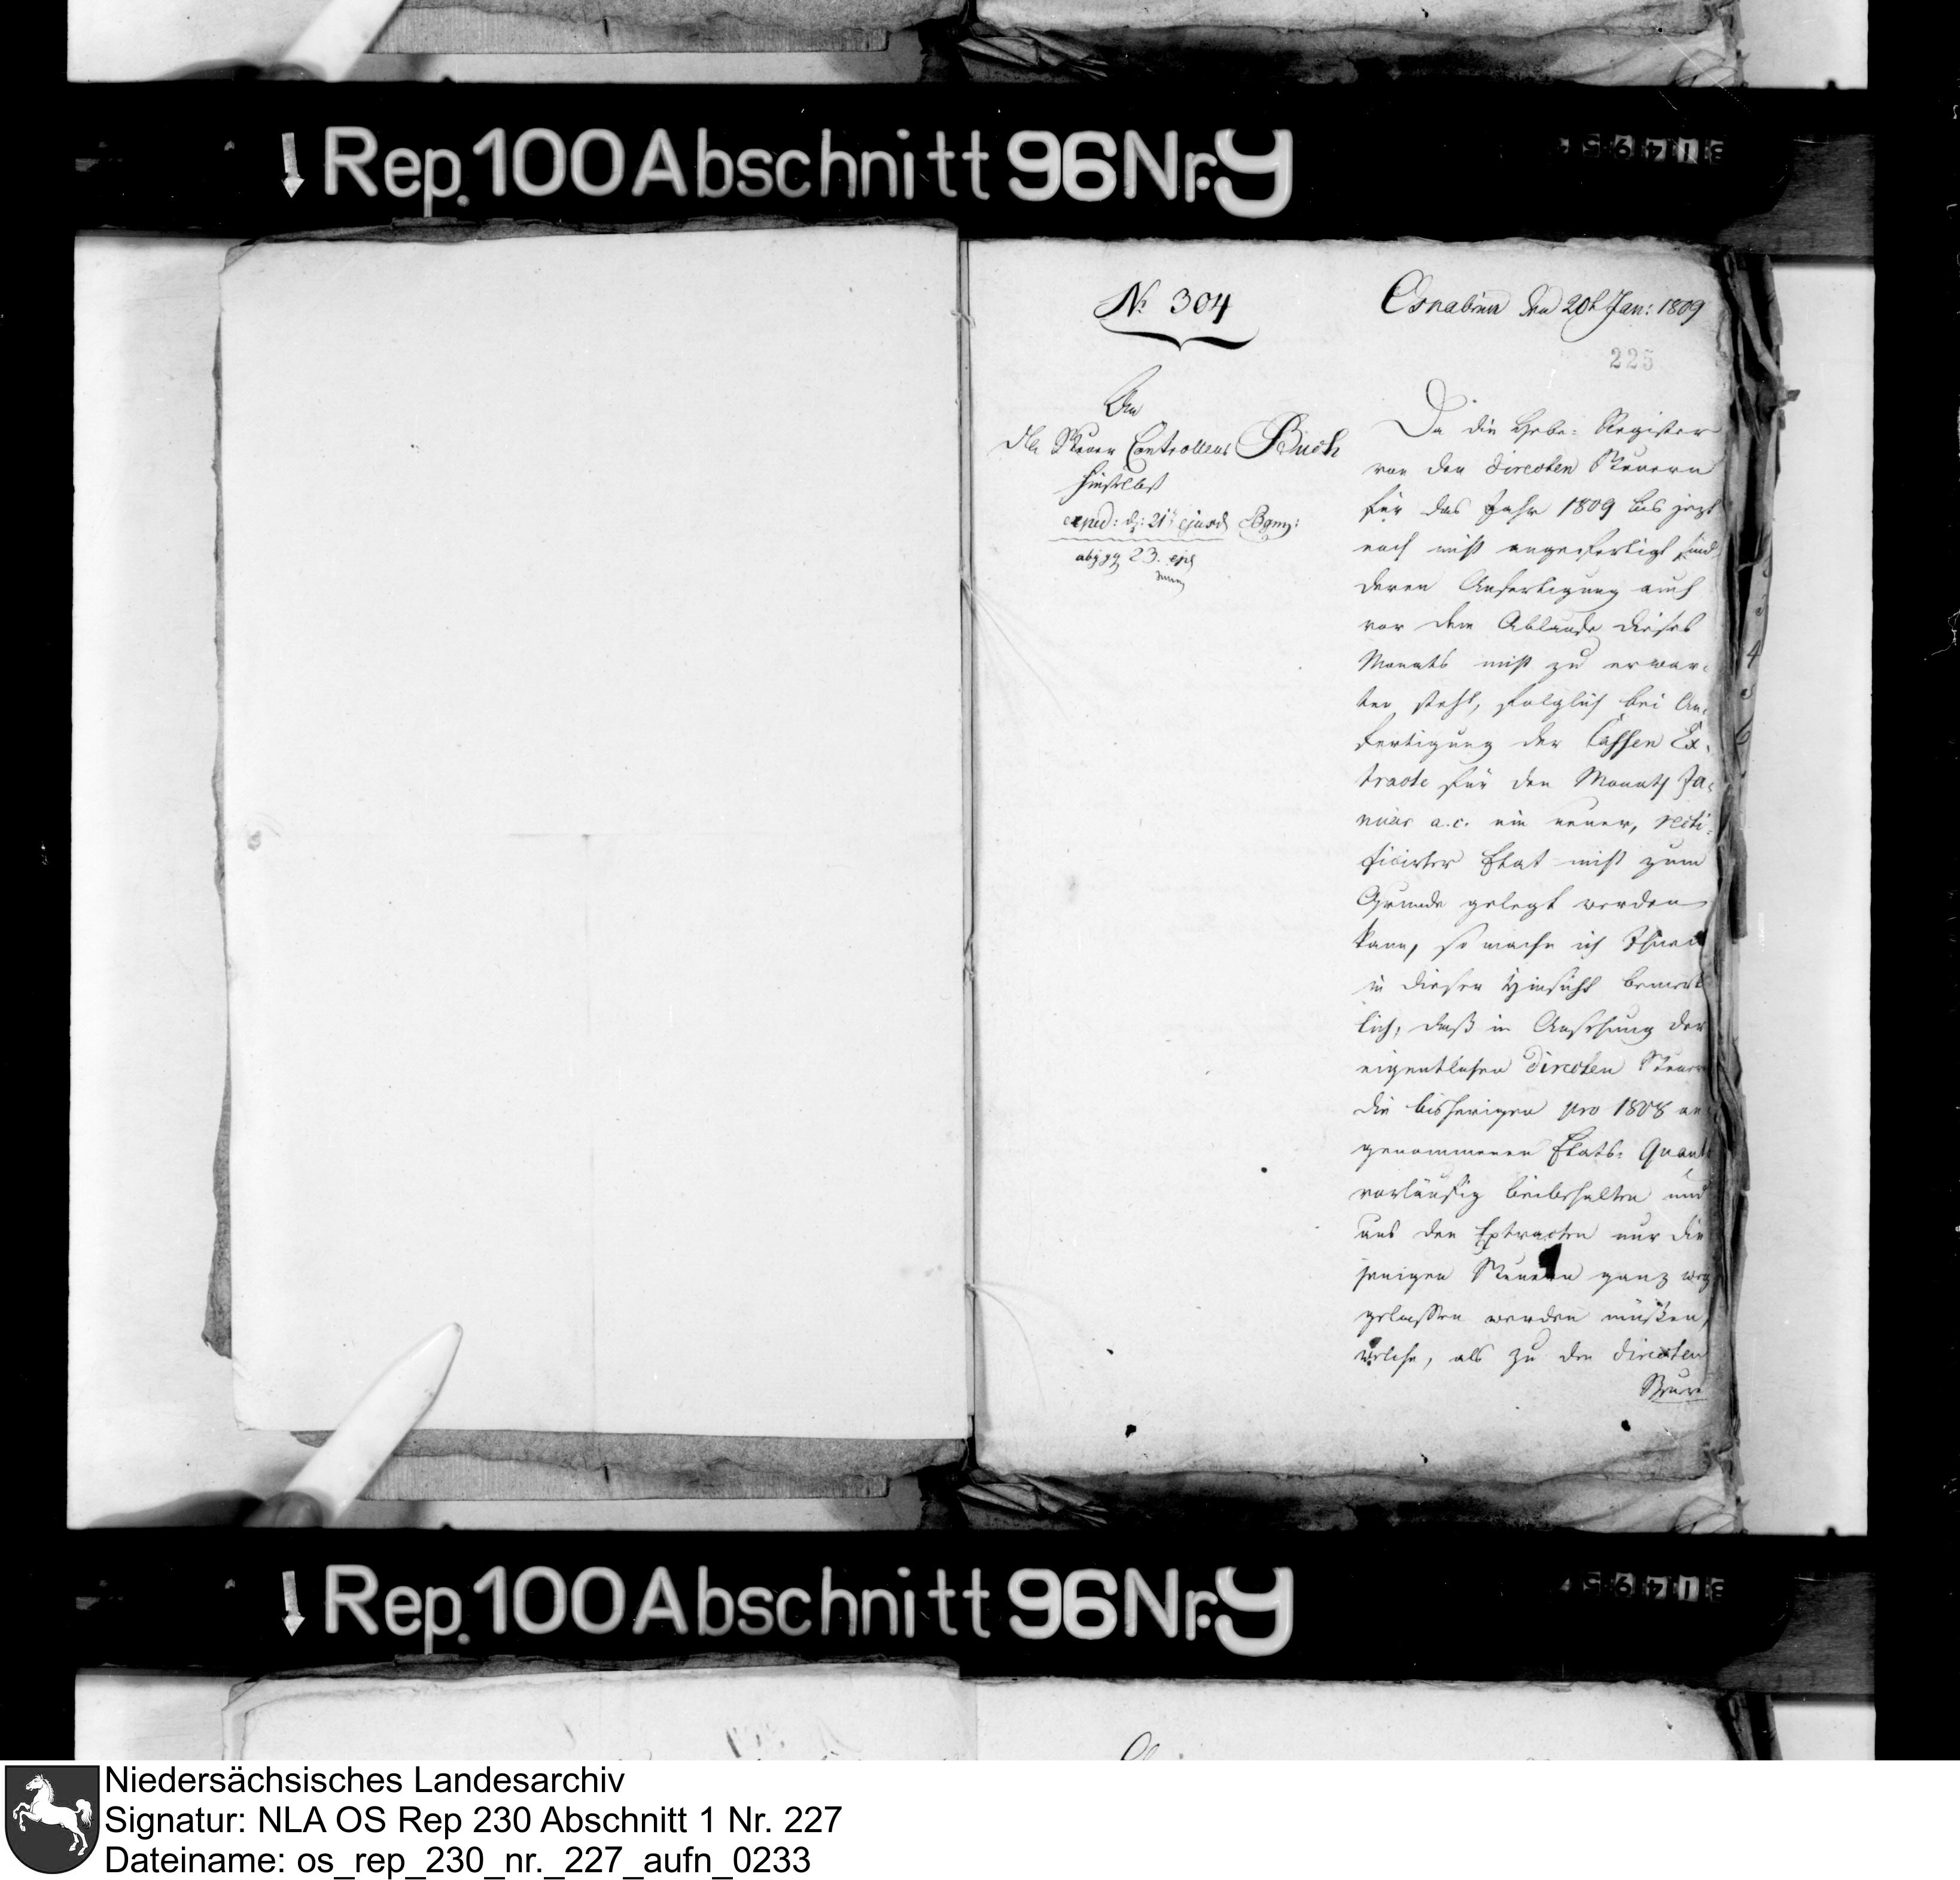 Rep. 100 Abschnitt 96 Nr. 9
No 304
Osnabrück den 20t Jan: 1809
225
An
den Steuer Controlleur Buch
hieselbst
exped: d: 21t ejusd
abgeg 23. ejs
Da die Hebe-Register
von den directen Steuern
für das Jahr 1809 bis jezt
noch nicht angefertigt sind
deren Anfertigung auch
vor dem Ablaufe dieses
Monats nicht zu erwar-
ten steht, folglich bei An-
fertigung der Cassen Ex-
tracte für den Monath Ja-
nuar a.c. ein neuer, recti-
ficirter Etat nicht zum
Grunde gelegt werden
kann, so mache ich Ihnen
in dieser Hinsicht bemerk
lich, daß in Ansehung der
eigentlichen directen Steuern
die bisherigen pro 1808 an
genommenen Etats-Quanta
vorläufig beibehalten und
aus den Extracten nur die
jenigen Steuern ganz weg
gelassen werden müssen,
welche, als zu den directen
Steuern
Rep. 100 Abschnitt 96 Nr. 9
Niedersächsisches Landesarchiv
Signatur: NLA OS Rep 230 Abschnitt 1 Nr. 227
Dateiname: os_rep_230_nr._227_aufn_0233